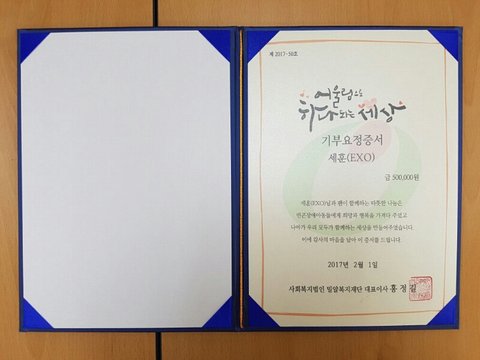 제 2017-50호
어울림으로
하나되는 세상
기부요정증서
세훈(EXO)
금 500,000원
세훈(EXO)님과 팬이 함께하는 따뜻한 나눔은
빈곤장애아동들에게 희망과 행복을 가져다 주셨고
나아가 우리 모두가 함께하는 세상을 만들어주셨습니다.
이에 감사의 마음을 담아 이 증서를 드립니다.
2017년 2월 1일
사회복지법인 밀알복지재단 대표이사 홍정길